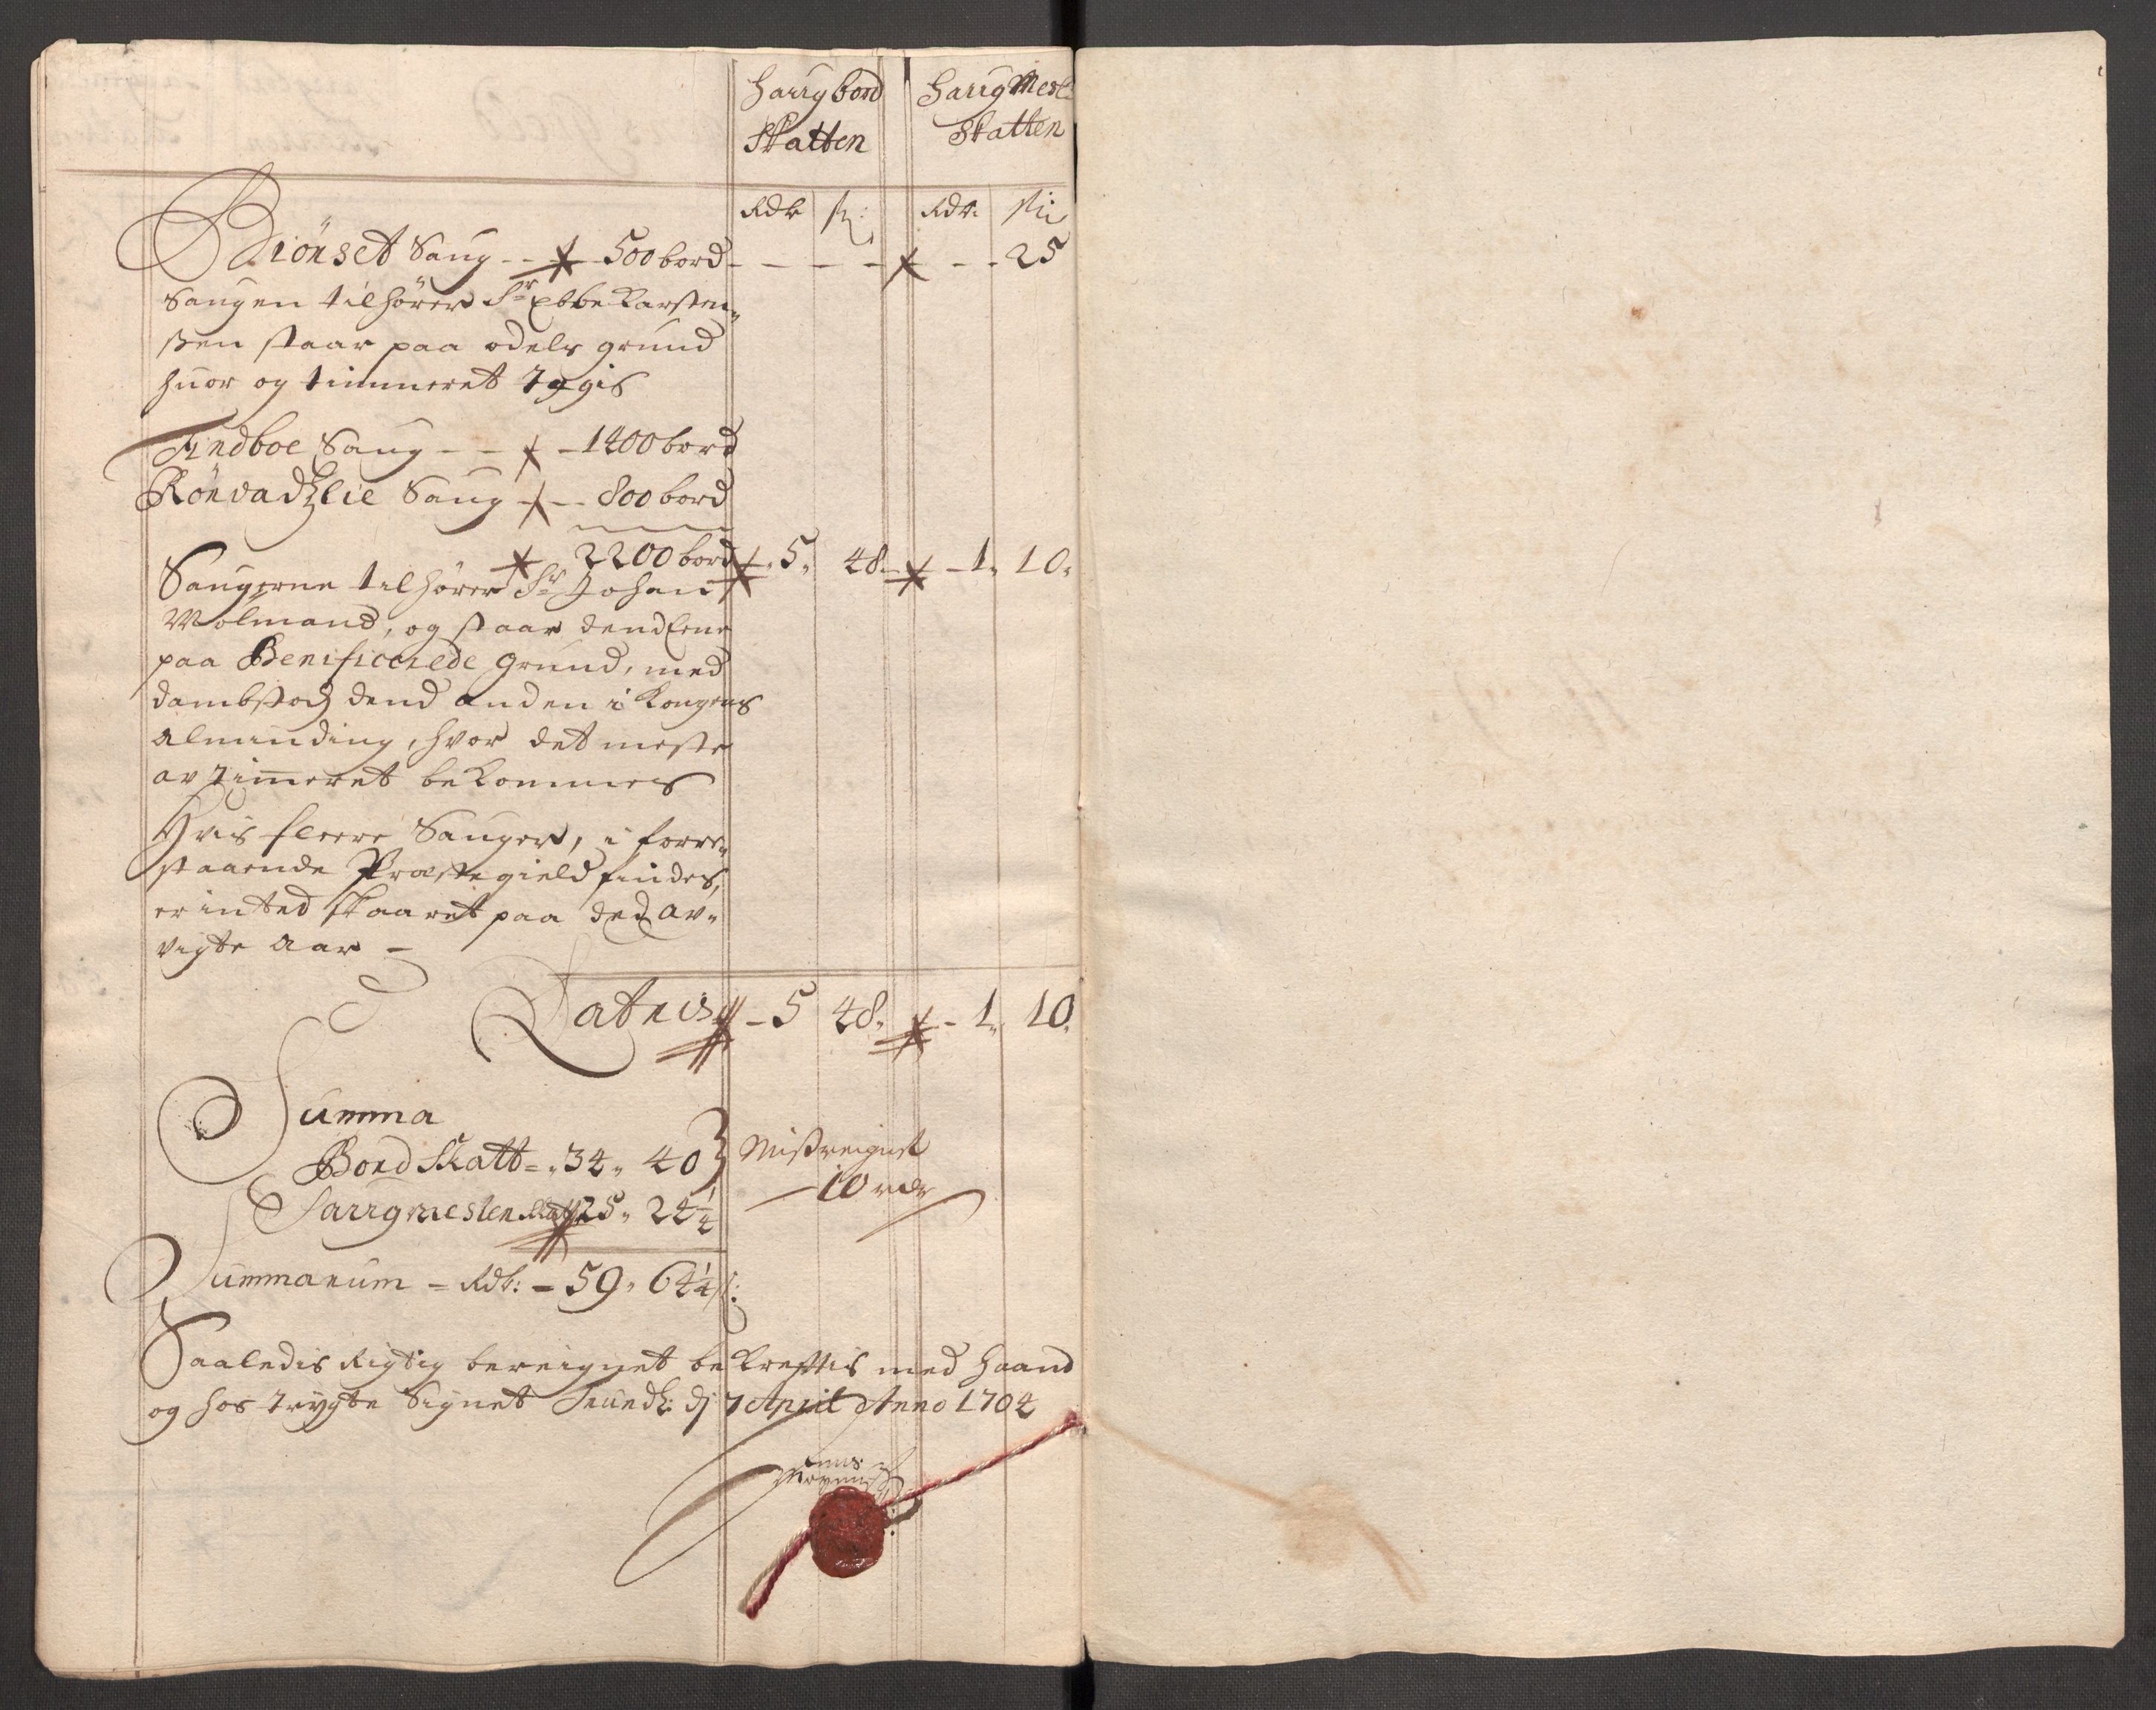 Saugbord Saug Mest
Skatten Skatten
Rdr ß: Rdr: ßk:
Biönset Saug - - 500 bord - - - - - - 25
Saugen tilhörer Sr Ebbe Karsten,,
ßen staar paa odels grund
huor og timmeret tggis
Findboe Saug - - - 1400 bord
Rönvadzlie Saug - - 800 bord
2200 bord 5,, 48 - 1,, 10,,
Saugerne tilhörer Sr Johan
Wolmand, og staar dend Eene
paa Benificerede Grund, med
dambstoch dend anden i Kongens
alminding, hvor det meste
av timeret bekommes
Hvis fleere Sauger, i forre,,
staaende Præstegield findes,
er inted skaaret paa det av,,
vigte Aar -
Lateris - 5 48,, - 1,, 10,,
Summa
Bord Skatt = ,, 34,, 40 } Misreignet
10 rdr
Saugmesten Skatt 25,, 24 1/4
Summarum = Rdr: - 59,, 64 1/4 ß:
Saaledis Rigtig bereignet bekreftis med Haand
og hos trygte Signet Trundh: dj 7 April Anno 1704